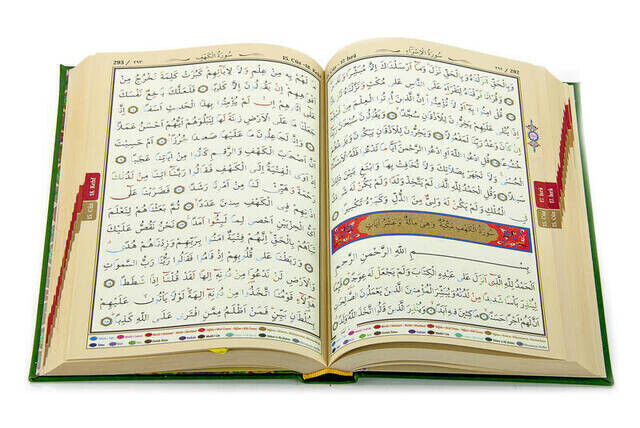 سُورَةُ الْاِسْرَاءِ
292 / ٢٩٢
وَبِالْحَقِّ اَنْزَلْنَاهُ وَبِالْحَقِّ نَزَلَ وَمَا اَرْسَلْنَاكَ اِلَّا مُبَشِّرًا وَنَذِيرًا
وَقُرْاٰنًا فَرَقْنَاهُ لِتَقْرَاَهُ عَلَى النَّاسِ عَلٰى مُكْثٍ وَنَزَّلْنَاهُ تَنْزِيلًا
قُلْ اٰمِنُوا بِهِ اَوْ لَا تُؤْمِنُوا اِنَّ الَّذِينَ اُوتُوا الْعِلْمَ مِنْ قَبْلِهِ
اِذَا يُتْلٰى عَلَيْهِمْ يَخِرُّونَ لِلْاَذْقَانِ سُجَّدًا وَيَقُولُونَ سُبْحَانَ رَبِّنَا
اِنْ كَانَ وَعْدُ رَبِّنَا لَمَفْعُولًا وَيَخِرُّونَ لِلْاَذْقَانِ يَبْكُونَ وَيَزِيدُهُمْ
خُشُوعًا قُلِ ادْعُوا اللّٰهَ اَوِ ادْعُوا الرَّحْمٰنَ اَيًّا مَا تَدْعُوا فَلَهُ الْاَسْمَاءُ
الْحُسْنٰى وَلَا تَجْهَرْ بِصَلَاتِكَ وَلَا تُخَافِتْ بِهَا وَابْتَغِ بَيْنَ ذٰلِكَ
سَبِيلًا وَقُلِ الْحَمْدُ لِلّٰهِ الَّذِي لَمْ يَتَّخِذْ وَلَدًا وَلَمْ يَكُنْ لَهُ شَرِيكٌ
فِي الْمُلْكِ وَلَمْ يَكُنْ لَهُ وَلِيٌّ مِنَ الذُّلِّ وَكَبِّرْهُ تَكْبِيرًا
سُورَةُ الْكَهْفِ مَكِّيَّةٌ وَهِيَ مِائَةٌ وَعَشْرُ اٰيَاتٍ
بِسْمِ اللّٰهِ الرَّحْمٰنِ الرَّحِيمِ
اَلْحَمْدُ لِلّٰهِ الَّذِي اَنْزَلَ عَلٰى عَبْدِهِ الْكِتَابَ وَلَمْ يَجْعَلْ لَهُ عِوَجًا
قَيِّمًا لِيُنْذِرَ بَاْسًا شَدِيدًا مِنْ لَدُنْهُ وَيُبَشِّرَ الْمُؤْمِنِينَ الَّذِينَ يَعْمَلُونَ الصَّالِحَاتِ
اَنَّ لَهُمْ اَجْرًا حَسَنًا مَاكِثِينَ فِيهِ اَبَدًا وَيُنْذِرَ الَّذِينَ قَالُوا اتَّخَذَ اللّٰهُ وَلَدًا
17. İsrâ
15. Cüz
293 / ٢٩٣
سُورَةُ الْكَهْفِ
15. Cüz - 18.
مَا لَهُمْ بِهِ مِنْ عِلْمٍ وَلَا لِاٰبَائِهِمْ كَبُرَتْ كَلِمَةً تَخْرُجُ مِنْ
اَفْوَاهِهِمْ اِنْ يَقُولُونَ اِلَّا كَذِبًا فَلَعَلَّكَ بَاخِعٌ نَفْسَكَ
عَلٰى اٰثَارِهِمْ اِنْ لَمْ يُؤْمِنُوا بِهٰذَا الْحَدِيثِ اَسَفًا اِنَّا
جَعَلْنَا مَا عَلَى الْاَرْضِ زِينَةً لَهَا لِنَبْلُوَهُمْ اَيُّهُمْ اَحْسَنُ عَمَلًا
وَاِنَّا لَجَاعِلُونَ مَا عَلَيْهَا صَعِيدًا جُرُزًا اَمْ حَسِبْتَ
اَنَّ اَصْحَابَ الْكَهْفِ وَالرَّقِيمِ كَانُوا مِنْ اٰيَاتِنَا عَجَبًا
اِذْ اَوَى الْفِتْيَةُ اِلَى الْكَهْفِ فَقَالُوا رَبَّنَا اٰتِنَا مِنْ لَدُنْكَ
رَحْمَةً وَهَيِّئْ لَنَا مِنْ اَمْرِنَا رَشَدًا فَضَرَبْنَا عَلٰى
اٰذَانِهِمْ فِي الْكَهْفِ سِنِينَ عَدَدًا ثُمَّ بَعَثْنَاهُمْ لِنَعْلَمَ
اَيُّ الْحِزْبَيْنِ اَحْصٰى لِمَا لَبِثُوا اَمَدًا نَحْنُ نَقُصُّ عَلَيْكَ
نَبَاَهُمْ بِالْحَقِّ اِنَّهُمْ فِتْيَةٌ اٰمَنُوا بِرَبِّهِمْ وَزِدْنَاهُمْ هُدًى
وَرَبَطْنَا عَلٰى قُلُوبِهِمْ اِذْ قَامُوا فَقَالُوا رَبُّنَا رَبُّ السَّمٰوَاتِ
وَالْاَرْضِ لَنْ نَدْعُوَا مِنْ دُونِهِ اِلٰهًا لَقَدْ قُلْنَا اِذًا شَطَطًا
هٰؤُلَاءِ قَوْمُنَا اتَّخَذُوا مِنْ دُونِهِ اٰلِهَةً لَوْلَا يَاْتُونَ عَلَيْهِمْ
بِسُلْطَانٍ بَيِّنٍ فَمَنْ اَظْلَمُ مِمَّنِ افْتَرٰى عَلَى اللّٰهِ كَذِبًا
18. Kehf
15. Cüz